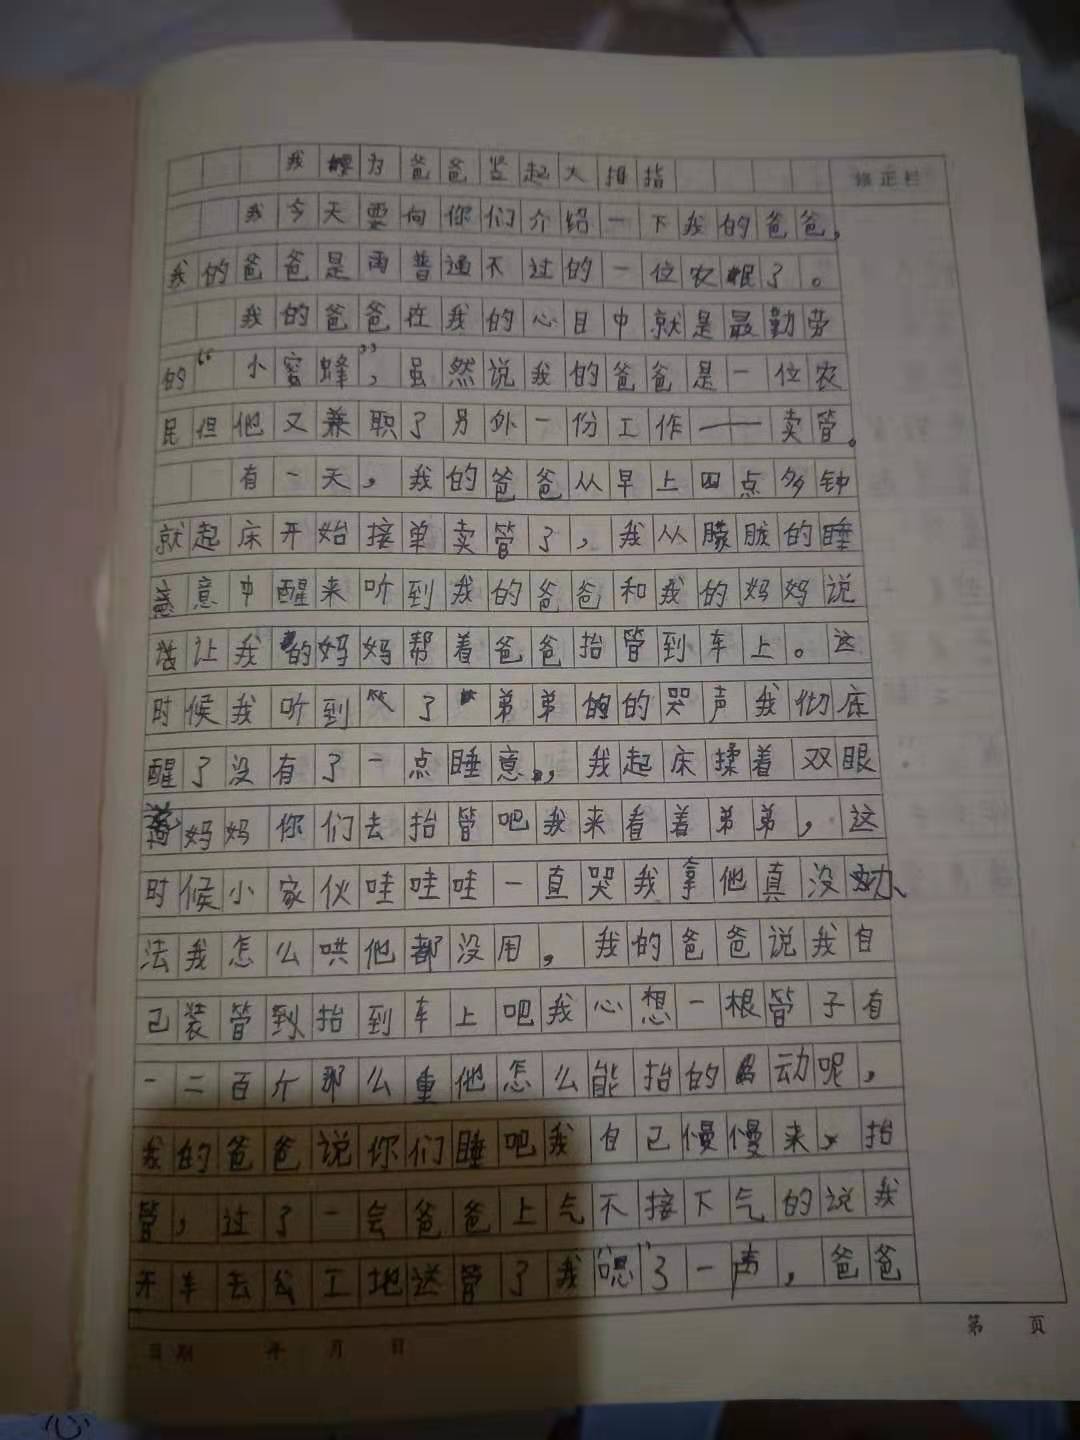 我要为爸爸竖起大拇指
修正栏
我今天要向你们介绍一下我的爸爸,
我的爸爸是再普通不过的一位农民了。
我的爸爸在我的心目中就是最勤劳
的“小蜜蜂”,虽然说我的爸爸是一位农
民但他又兼职了另外一份工作——卖管。
有一天,我的爸爸从早上四点多钟
就起床开始接单卖管了,我从朦胧的睡
意中醒来听到我的爸爸和我的妈妈说
话让我的妈妈帮着爸爸抬管到车上。这
时候我听到了弟弟的哭声我彻底
醒了没有了一点睡意,我起床揉着双眼
说妈妈你们去抬管吧我来看着弟弟,这
时候小家伙哇哇哇一直哭我拿他真没办
法我怎么哄他都没用,我的爸爸说我自
己装管到抬到车上吧我心想一根管子有
一二百斤那么重他怎么能抬的动呢,
我的爸爸说你们睡吧我自己慢慢来抬
管,过了一会爸爸上气不接下气的说我
开车去工地送管了我“嗯”了一声,爸爸
日期 年 月 日
第 页